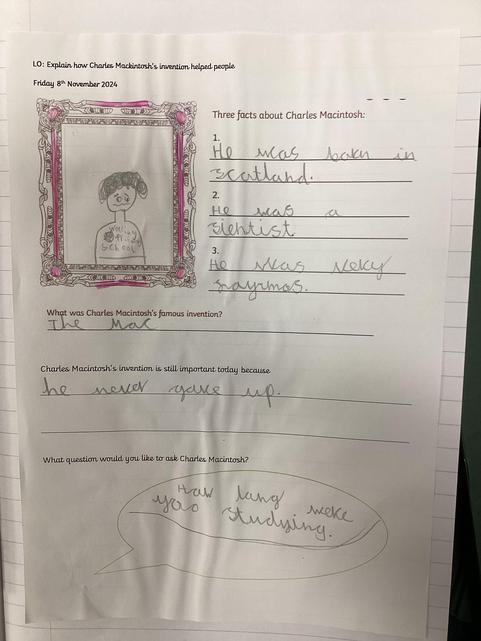 LO: Explain how Charles Mackintosh's invention helped people
Friday 8th November 2024
Three facts about Charles Macintosh:
1.
He was born in
Scotland.
2.
He was a
sientist
3.
He was very
faymos.
What was Charles Macintosh's famous invention?
The Mac
Charles Macintosh's invention is still important today because
he never gave up.
What question would you like to ask Charles Macintosh?
How long were
you studying.